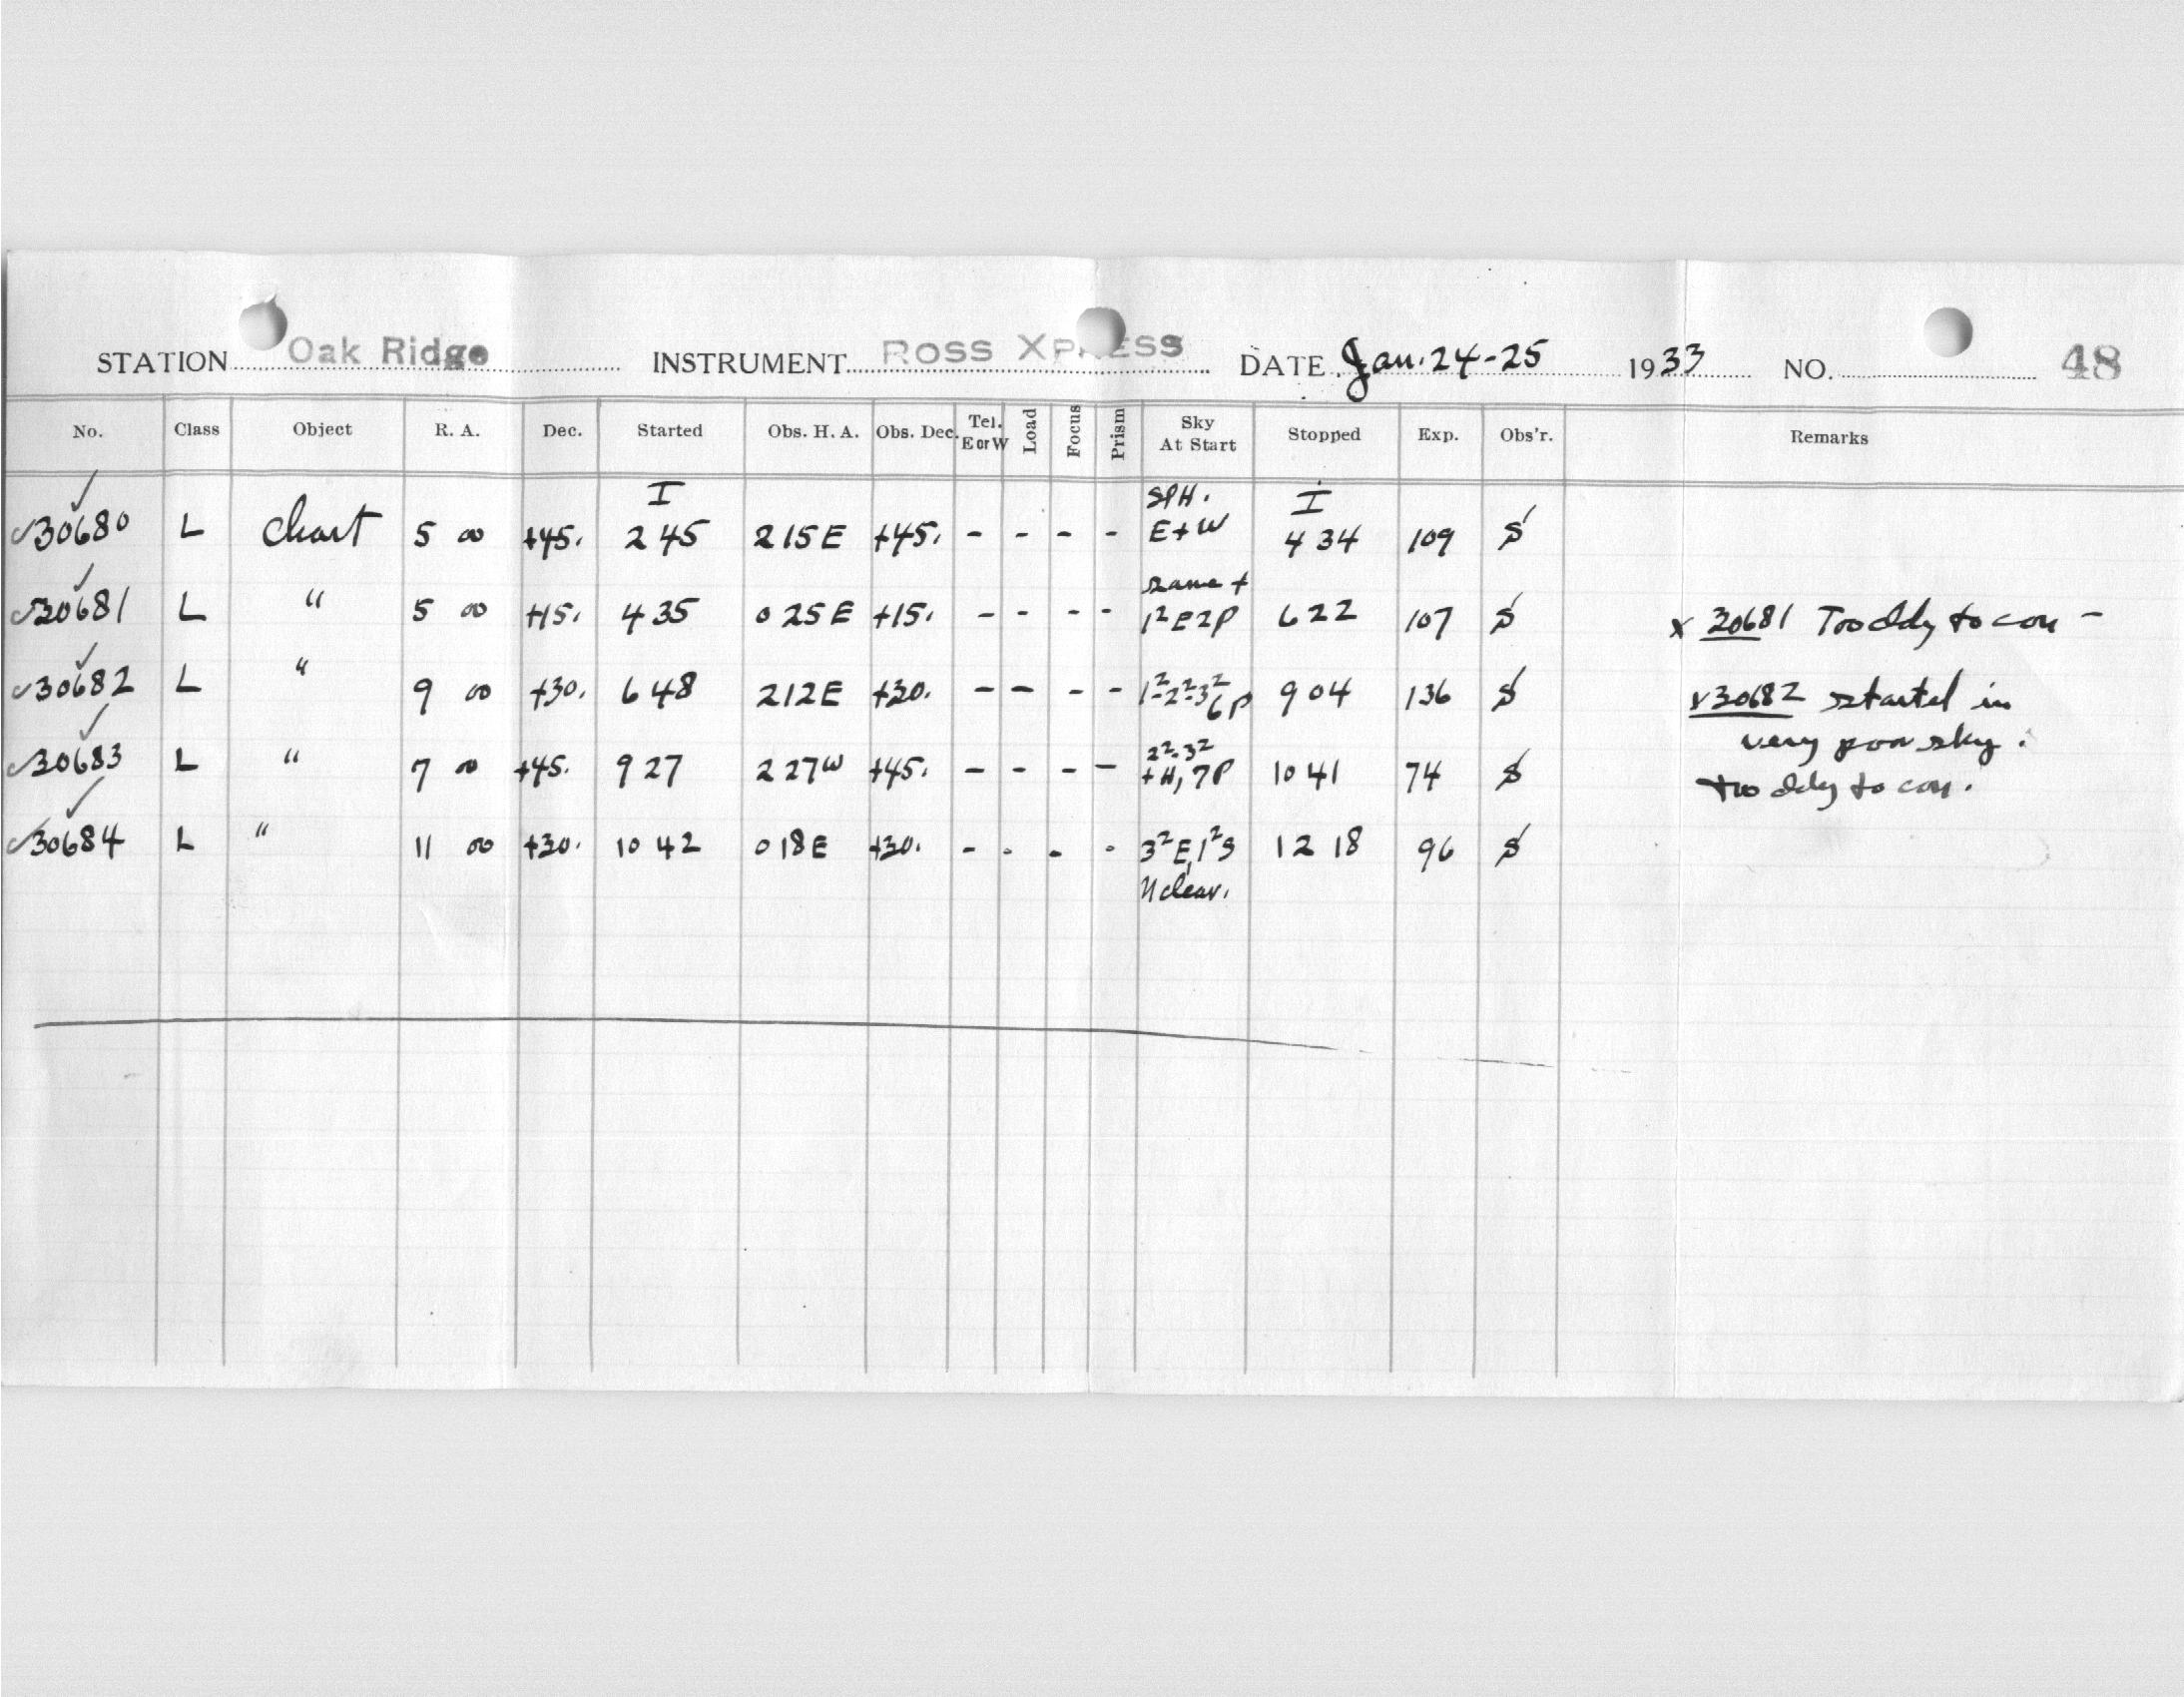 STATION Oak Ridge INSTRUMENT ROSS XPRESS DATE Jan. 24-25 1933 NO. 48
No. Class Object R. A. Dec. Started Obs. H. A. Obs. Dec. Tel. E or W Load Focus Prism Sky At Start Stopped Exp. Obs'r. Remarks
I SPH. I
30680 L Chart 5 00 +45. 2 45 2 15 E +45. - - - - E + W 4 34 109 S
same +
30681 L " 5 00 +15. 4 35 0 25 E +15. - - - - 1² E 2 P 6 22 107 S x 30681 Too cldy to con -
30682 L " 9 00 +30. 6 48 2 12 E +30. - - - - 1²-2²-3² 6 P 9 04 136 S x 30682 started in
very poor sky.
30683 L " 7 00 +45. 9 27 2 27 W +45. - - - - 2²-3² + H, 7 P 10 41 74 S
too cldy to con.
30684 L " 11 00 +30. 10 42 0 18 E +30. - - - - 3² E, 1² S 12 18 96 S
N clear.